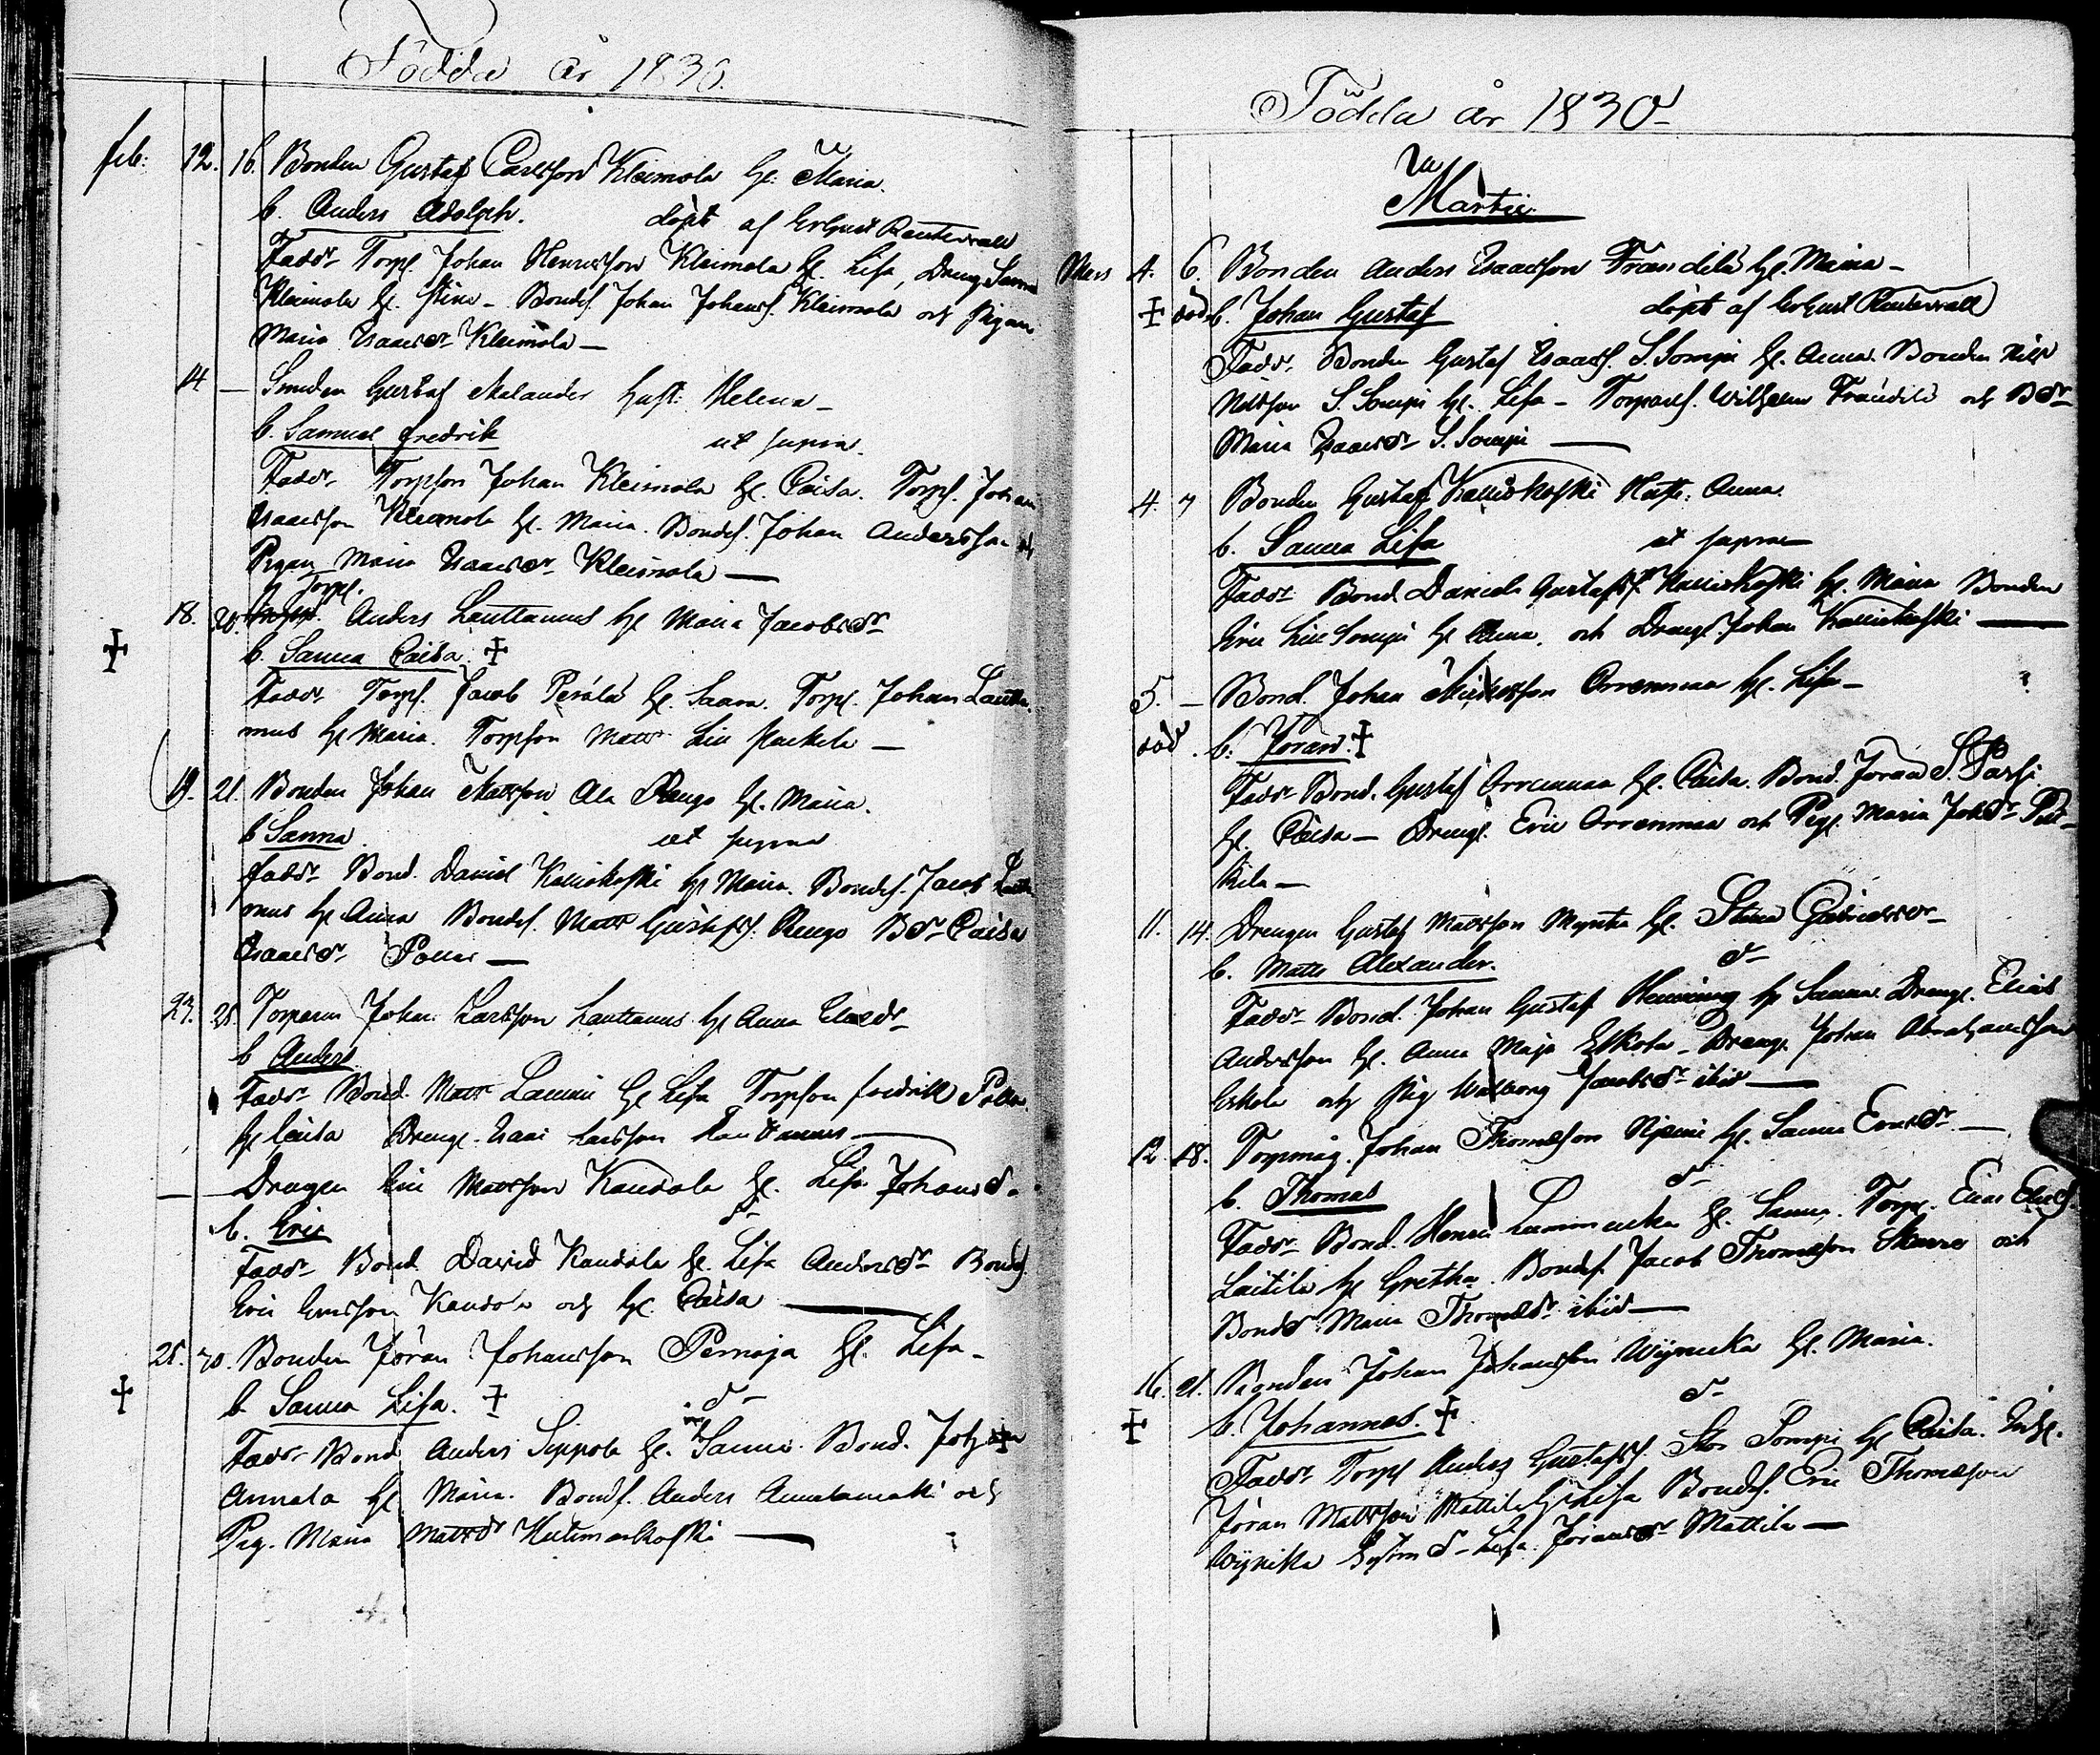 Födda år 1830.
feb: 12. 16. Bonden Gustaf Carlsson Kleimola h. Maria.
b. Anders Adolph. döpt af
Fadd. Torp. Johan Henricsson Kleimola h. Lisa, Dreng
Kleimola h. Stina – Bondes. Johan Johans. Kleimola och Pigan
Maria Isaacsdr Kleimola —
14 — Smeden Gustaf Melander hust: Helena –
b. Samuel Fredrik ut supra.
Fadd. Torpson Johan Kleimola h. Caisa. Torp. Johan
Isaacsson Kleimola h. Maria. Bondes. Johan Andersson och
Pigan Maria Isaacsdr Kleimola —
Torp.
18. 20. Anders Lauttamus h. Maria Jacobsdr
b. Sanna Caisa
Fadd. Torp. Jacob Perälä h. Saara. Torp. Johan Lautta
mus h. Maria. Torpson Matts
19. 21. Bonden Johan Mattsson Ala Rengo h. Maria.
b Sanna ut supra
fadd. Bond. Daniel Kalliokoski h. Maria. Bondes. Jacob Lautta
mus h. Anna Bondes. Matts Gustafs. Rengo Bdr Caisa
Isaacsdr
23. 25. Torparen Johan Larsson Lauttamus h. Anna
b Anders
Fadd. Bond. Matts Lammi h. Lisa Torpson Fredrik
h. Caisa Dreng. Isaac Larsson Lauttamus —
— Drengen Eric Mattsson Kandola h. Lisa Johansd.
b. Eric d–
Fadd. Bond. David Kandola h. Lisa Andersdr Bondes.
Eric Ericsson Kandola och h. Caisa —
25. 30. Bonden Jöran Johansson Pernaja h. Lisa –
b Sanna Lisa. d–
Fadd. Bond Anders Seppola h. Sanna. Bond. Johan
Annala h. Maria. Bonds. Anders Annalamäki och
Pig. Maria Mattsdr —
Födda år 1830
Martii
Mars 4. 6. Bonden Anders Isaacsson Frändilä h. Maria –
död b. Johan Gustaf döpt af
Fadd. Bonden Gustaf Isaacs. S. Sompi h. Anna. Bonden Nils
Nilsson S. Sompi h. Lisa – Torpares. Wilhelm Frändilä och Bdr
Maria Isaacsdr S. Sompi —
4. 7 Bonden Gustaf Kalliokoski Hust: Anna.
b. Sanna Lisa ut supra
Fadd. Bond. Daniel Gustafs. Kalliokoski h. Maria Bonden
Eric Lill Sompi h. Anna, och Dreng. Johan Kalliokoski —
5. — Bond. Johan Orrenmaa h. Lisa –
död. b. Jöran.
Fadd. Bond. Gustaf Orrenmaa h. Caisa. Bond. Jöran S. Passi
h. Caisa – Dreng. Eric Orrenmaa och Pig. Maria Johsdr
kila —
11. 14. Drengen Gustaf Mattsson h. Stina Gabrielsdr
b. Matts Alexander. d–
Fadd. Bond. Johan Gustaf h. Sanna Dreng. Elias
Andersson h. Anna Maja Eskola – Dreng. Johan Abrahamsson
Eskola och Pig Walborg Jacobsdr ibid —
12 18. Torpmåg. Johan Thomasson h. Sanna Ericsdr —
b. Thomas d–
Fadd. Bond. Henric h. Sanna. Torp. Elias Elias.
Laitila h. Gretha. Bondes. Jacob Thomasson och
Bondd. Maria Thomasdr ibid —
16. 21. Johan Johansson Wijnikka h. Maria.
b. Johannes. d–
Fadd. Torp Anders Gustafs. Stor Sompi h. Caisa.
Jöran Mattsson Mattila h. Lisa Bondes. Eric Thomasson
Wijnikka d– Lisa Jöransdr Mattila —